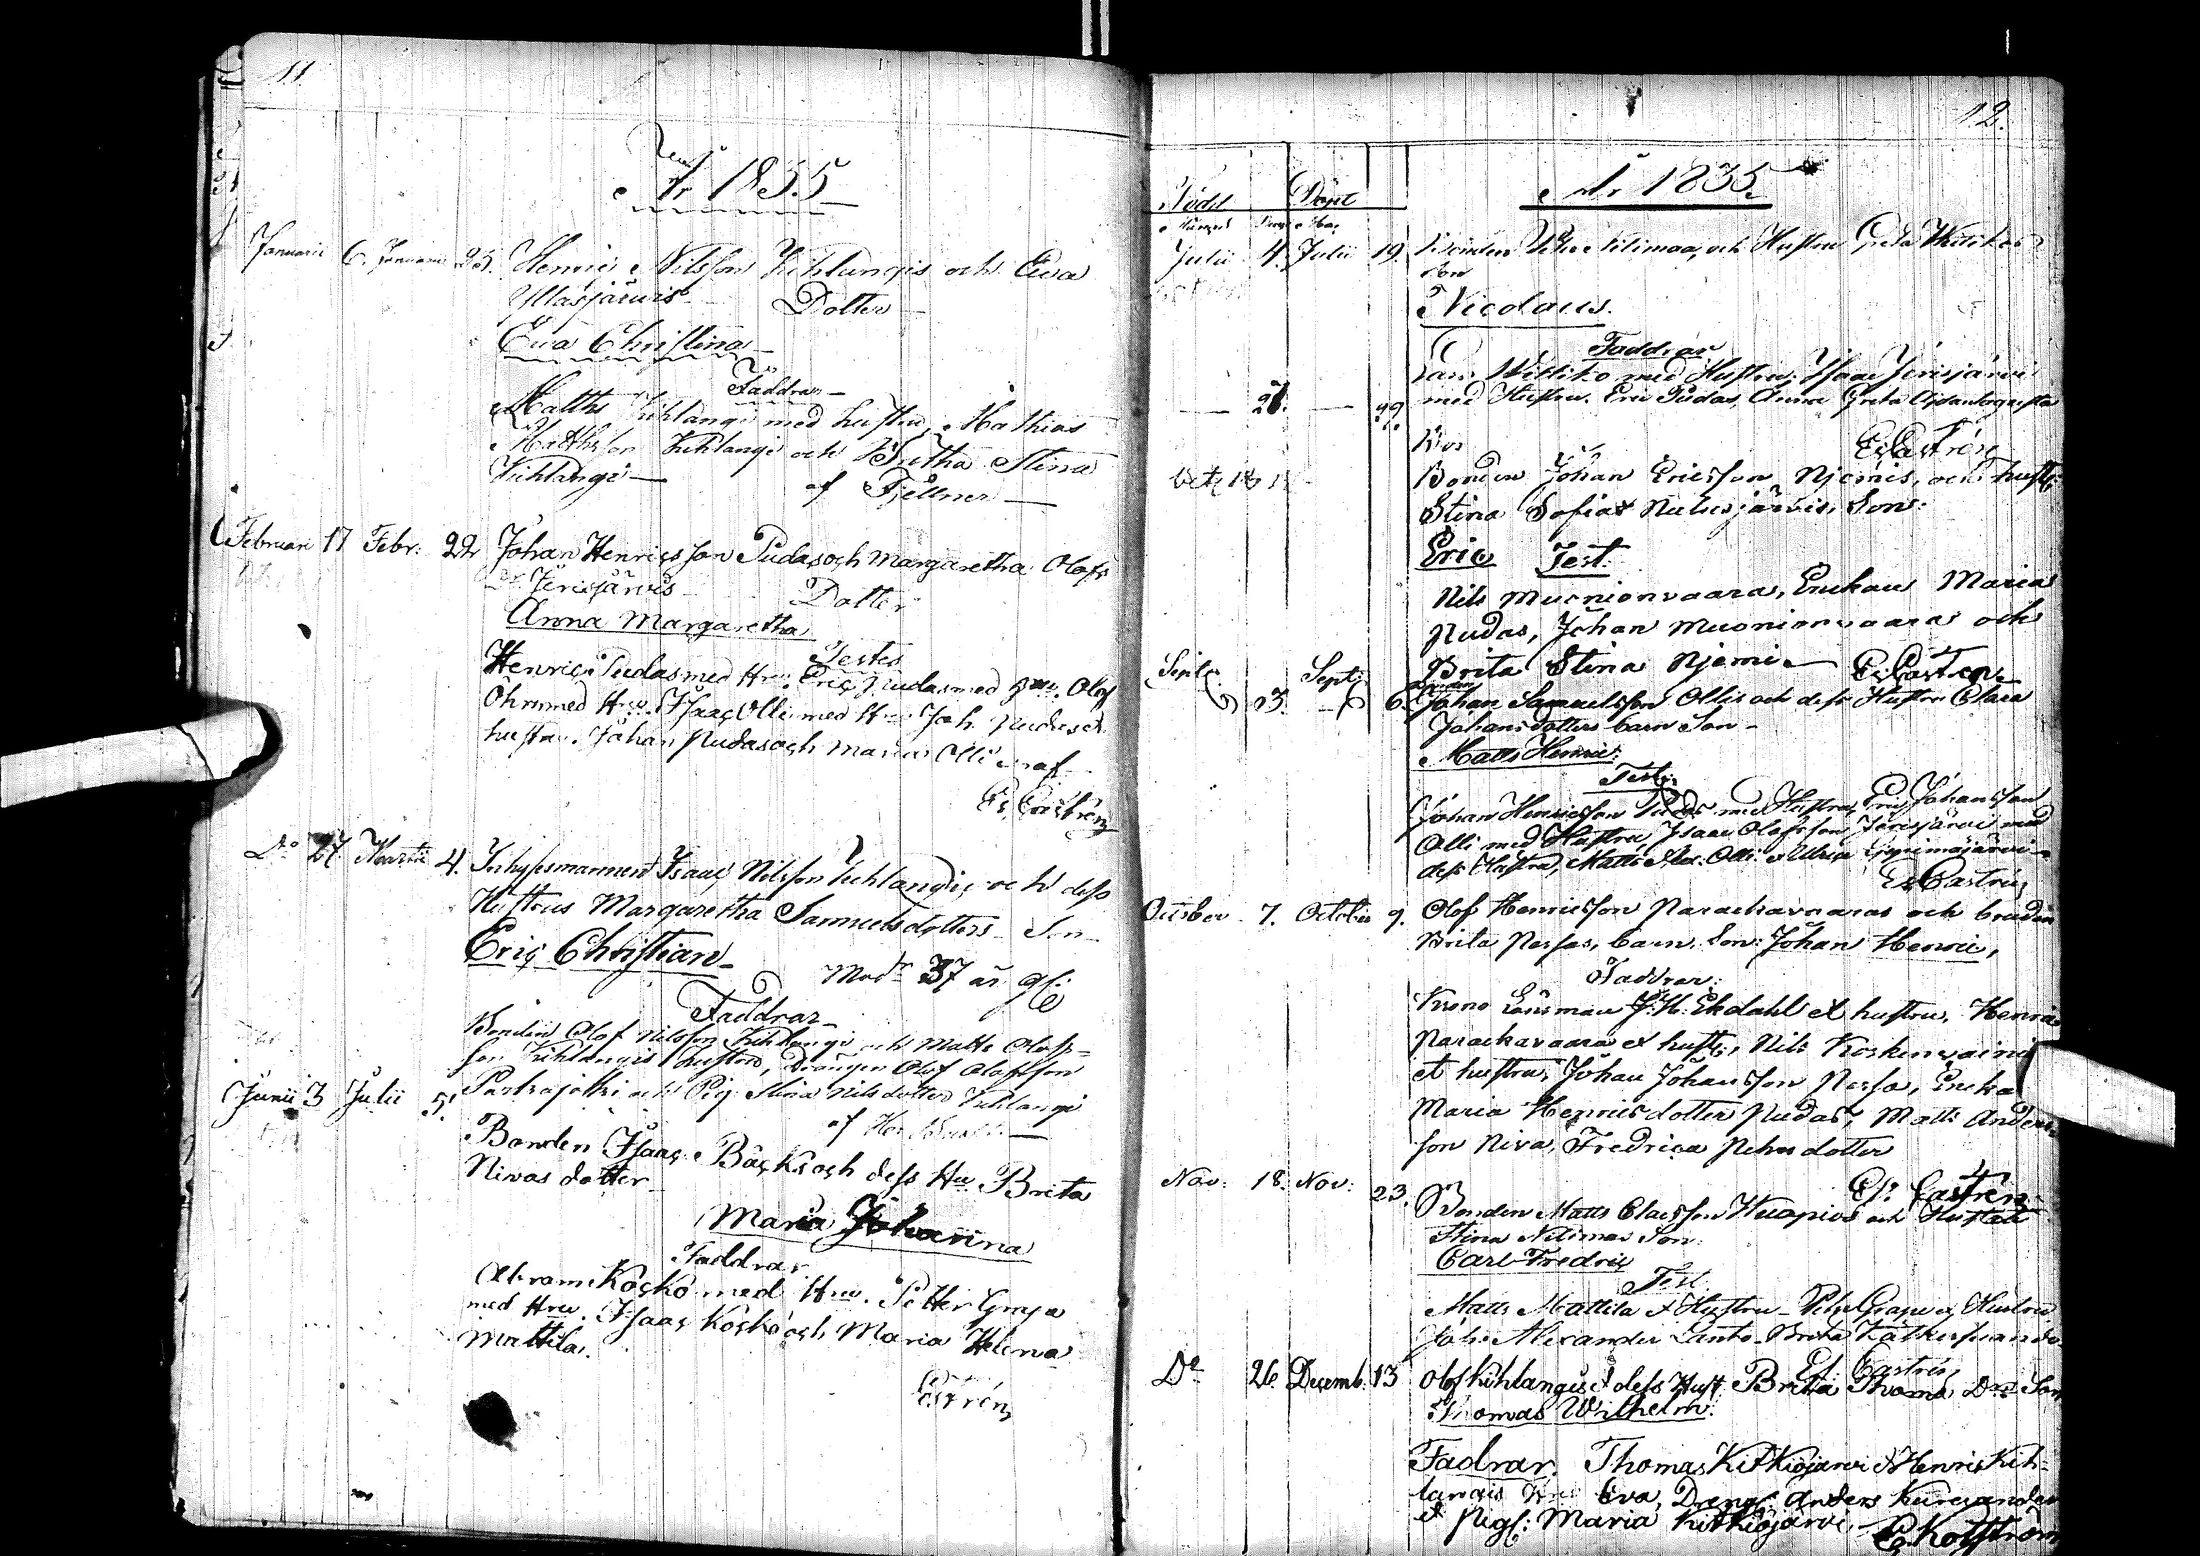 11
År 1835
Januarii 6. Januarii 25. Henric Nilsson Kihlangis och Eva
Yllasjärvis Dotter
Eva Christina
Faddrar
Matths Kihlangi med hustru, Mathias
Mathsson Kihlangi och Britha Stina
Kihlangi af Fjellner
Februari 17 Febr: 22 Johan Henricsson Pudas och Margaretha Olofs
Jerisjärvis Dotter
Anna Margaretha
Testes
Henric Pudas med Hru, Eric Pudas med Hru, Olof
Öhrn med Hru, Isaac Olli med Hru Joh. Pudas et
hustru. Johan Pudas och Maria Olli af
Es. Castrén
Do 27 Martii 4. Inhysesmannen Isaac Nilsson Kihlangis och dess
Hustrus Margaretha Samuelsdotters Son
Eric Christian
Modr 37 år gl:
Faddrar
Bonden Olof Nilsson Kihlangi och Matts Olofs-
son Kihlangis hustru, Drängen Olof Olofsson
Parkajoki och Pig Stina Nilsdotter Kihlangi
af
Junii 3 Julii 5. Bonden Isaac Bäcks och dess Hu Brita
Nivas dotter
Maria Johanna
Faddrar
Abram Koskö med Hru. Petter Grapa
med Hru. Isaac Koskö och Maria Helena
Mattila.
Castrén
12.
År 1835.
Född Döpt
Julii 4. Julii 19. Bonden Niliimaa, och Hustru Greta
Son
Nicolaus.
Faddrar
Lars Wittiko med Hustru, Isaac Jerisjärvi
med Hustru. Eric Pudas, Anna Greta
Es Castrén
— 21. — 29. Bonden Johan Ericsson Njemis, och hust:
Stina Sofia Son:
Eric Test:
Nils Muonionvaara, Enckan Maria
Pudas, Johan Muonionvaara och
Brita Stina Njemi Es Castrén
Sept: 3. Sept: 6. Bonden
Johan Samuelsson Ollis och dess Hustru Clara
Johansdotters barn Son
Matts Henric:
Test:
Johan Henricsson Pudas med Hustru, Eric Johansson
Olli med Hustru, Isaac Olofsson Jerisjärvi med
dess Hustru, Matts Alex. Olli
Es Castrén
October 7. October 9. Olof Henricsson Parackavaaras och bruden
Brita Persas, barn Son: Johan Henric,
Faddrar:
Krono Länsman J: H: Ekdahl et hustru, Henric
Parackavaara et hust:, Nils Koskenvaini
et hustru, Johan Johansson Persa, Encka
Maria Henricsdotter Pudas, Matts Anders-
son Niva, Fredrica Pehrsdotter
Es: Castrén
Nov: 18. Nov: 23. Bonden Matts Claesson Kuapios och Hustru
Stina Niliimas Son:
Carl Fredric
Test
Matts Mattila & Hustru Petr Grape & Hustru
Joh: Alexander Lanto Brita Kätkesuando
Es: Castrén
Do 26. Decemb. 13 Olof Kihlangis & dess Hust. Brita Thomæ Dr Son
Thomas Wilhelm.
Fadrar. Thomas Kitkiöjärvi & Henric Kih-
langis Hru Eva, Dreng: Anders
& Pigl: Maria Kitkiöjärvi